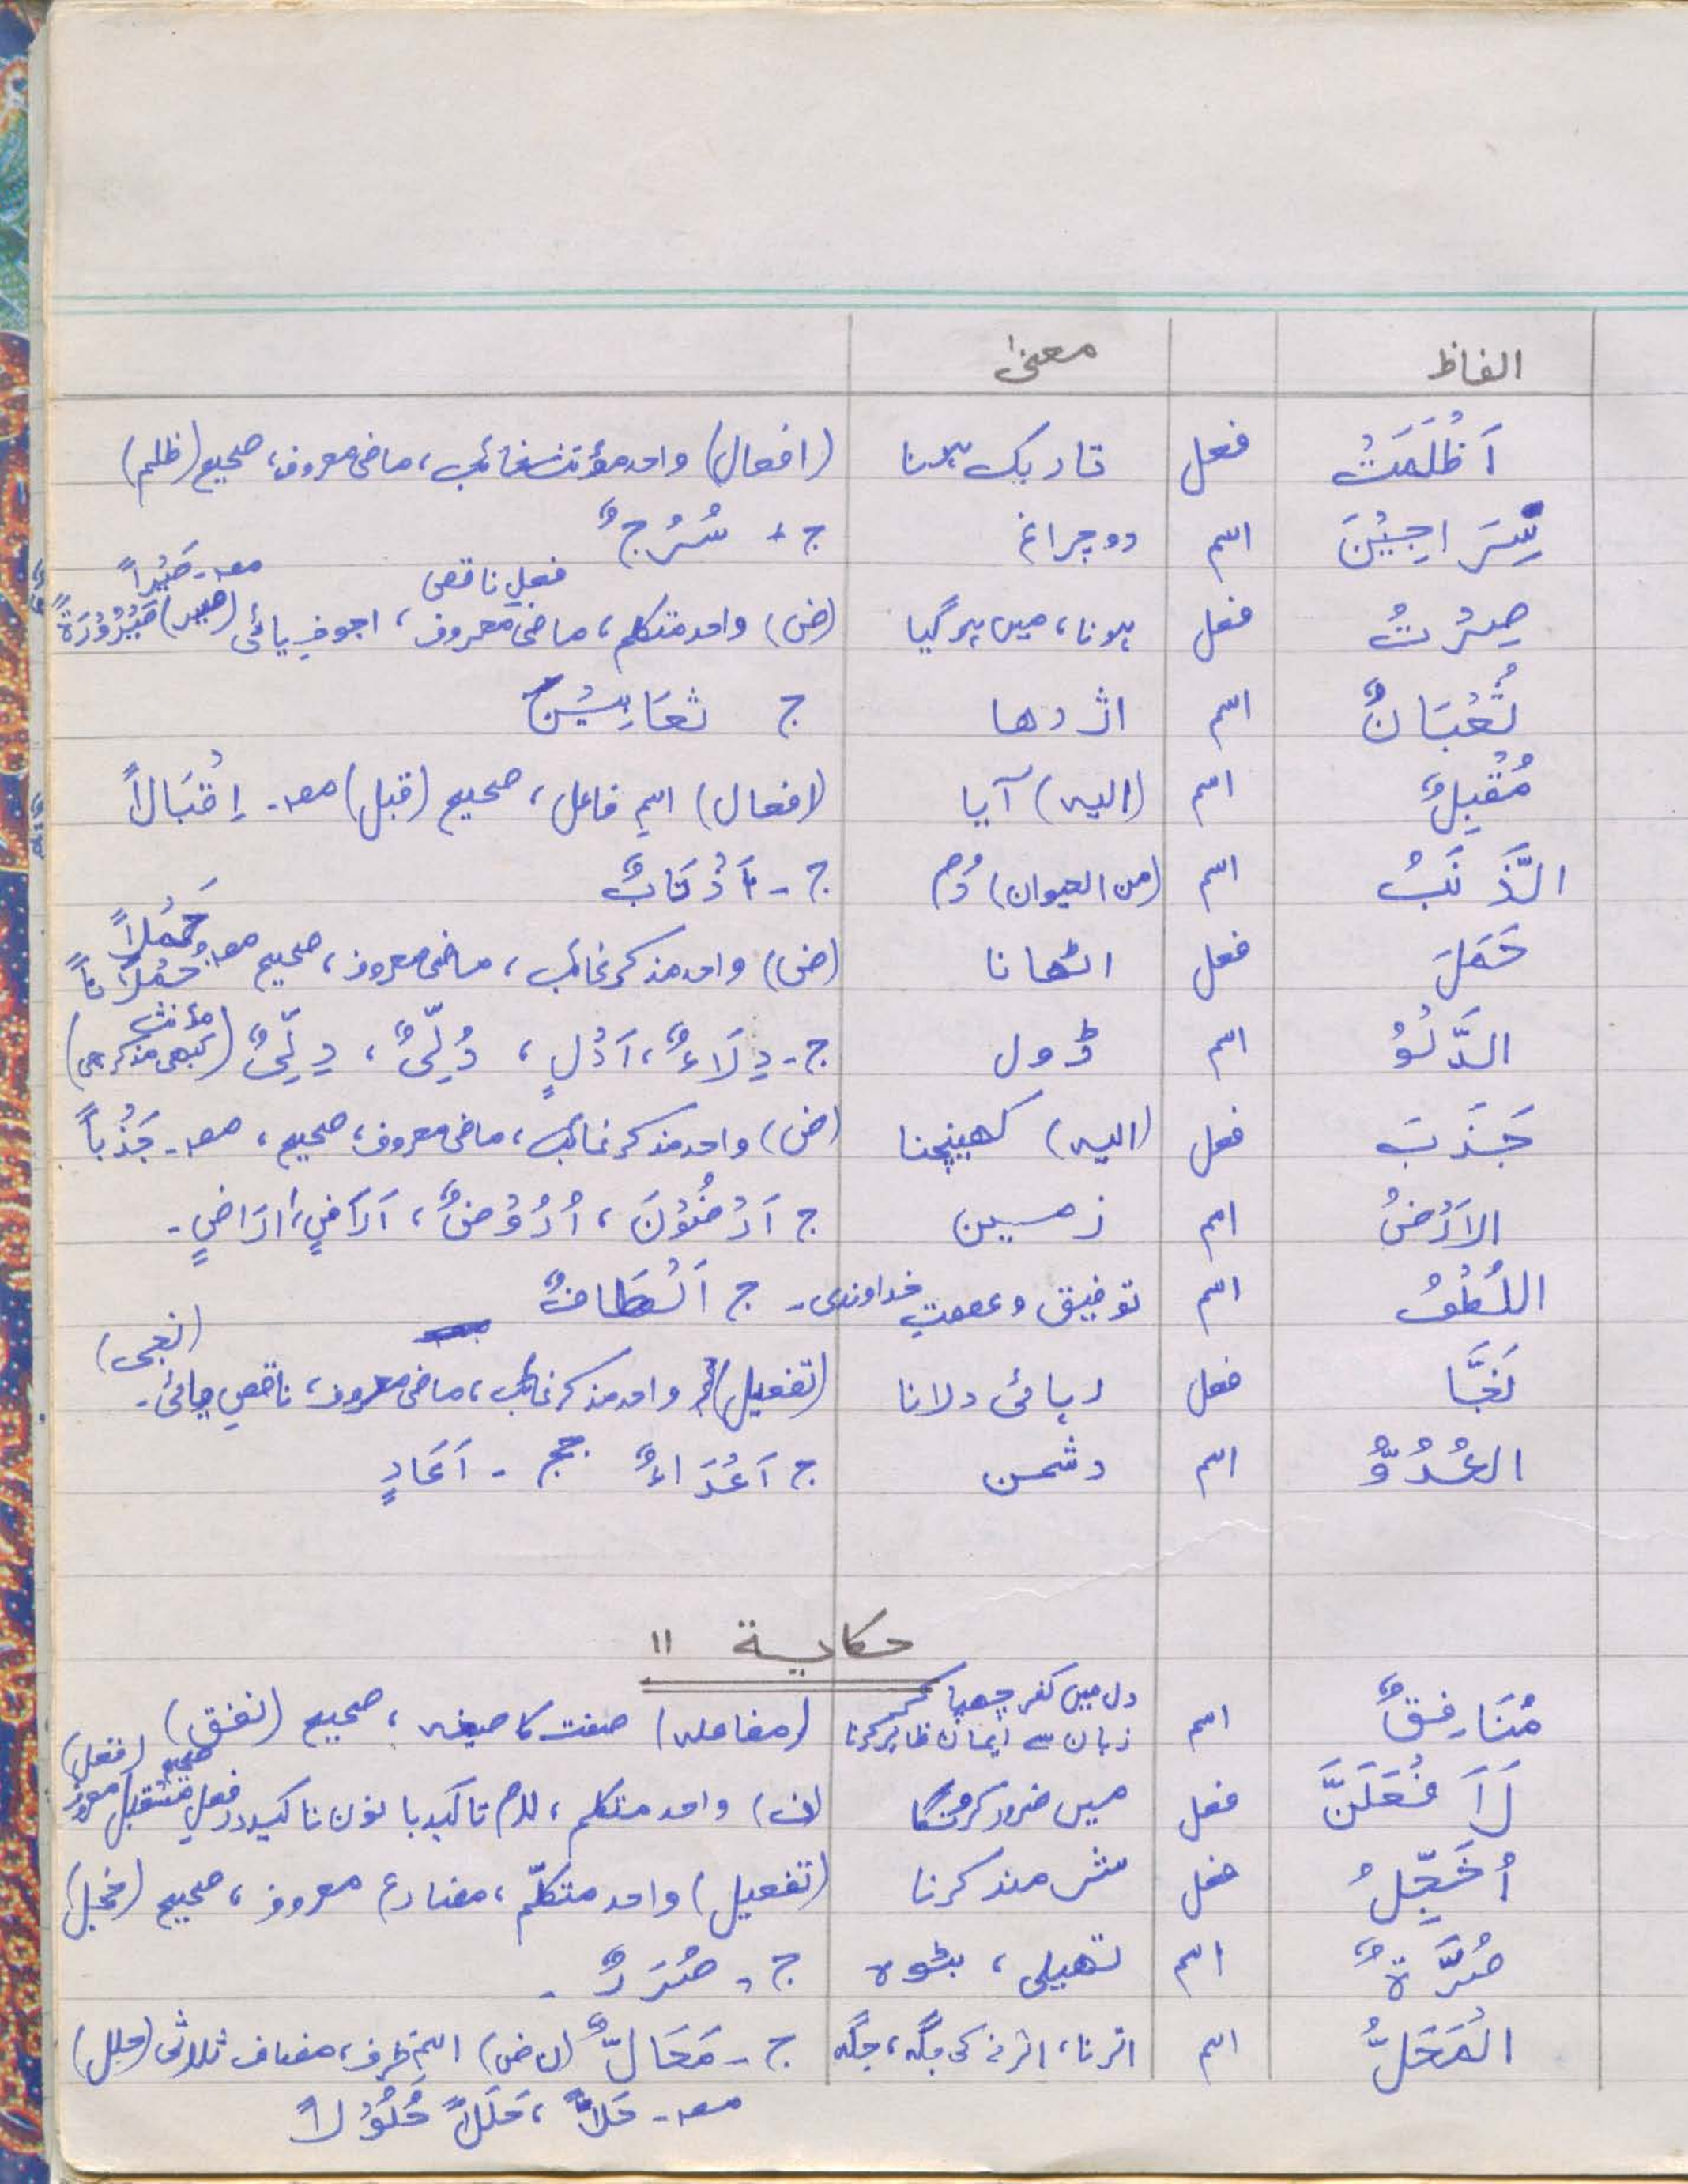 الفاظ معنیٰ
اَظْلَمَتْ فعل تاریک ہونا (افعال) واحد مؤنث غائب، ماضی معروف، صحیح (ظلم)
سِرَاجَیْنَ اسم دو چراغ ج - سُرُجٌ
صِرْتُ فعل ہونا، میں ہوگیا (ض) واحد متکلم، ماضی معروف، فعلِ ناقص، اجوفِ یائی (صیر) مصـ صَیْراً صَیْرُوْرَۃً
ثُعْبَانٌ اسم اژدھا ج ثعَابِیْنُ
مُقْبِلٌ اسم (الیہ) آیا (افعال) اسمِ فاعل، صحیح (قبل) مصـ۔ اِقْبَالاً
الذَّنَبُ اسم (من الحیوان) دُم ج - اَذْنَابٌ
حَمَلَ فعل اٹھانا (ض) واحد مذکر غائب، ماضی معروف، صحیح مصـ حَمْلاً حُمْلَاناً
الدَّلْوُ اسم ڈول ج- دِلَاءٌ، اَدْلٍ، دُلِّیٌ، دِلِّیٌ (مؤنث کبھی مذکر بھی)
جَذَبَ فعل (الیہ) کھینچنا (ض) واحد مذکر غائب، ماضی معروف، صحیح، مصـ۔ جَذْباً
الاَرْضُ اسم زمین ج اَرْضُوْنَ، اُرُوْضٌ، اَرَاضٍ، ارَاضٍ۔
اللُطْفُ اسم توفیق و عصمتِ خداوندی۔ ج اَلْطَافٌ
نَجَّا فعل رہائی دلانا (تفعیل) واحد مذکر غائب، ماضی معروف، ناقصِ یائی۔ (نجی)
العُدُوُّ اسم دشمن ج اَعْدَاءٌ ججـ - اَعَادٍ
حکایۃ ۱۱
مُنَافِقٌ اسم دل میں کفر چھپا کر زبان سے ایمان ظاہر کرنا (مفاعلہ) صفت کا صیغہ، صحیح (نفق)
لَاَفْعَلَنَّ فعل میں ضرور کرونگا (ف) واحد متکلم، لام تاکید با نون تاکید در فعلِ مستقبل معروف صحیح (فعل)
اُخَجِّلُ فعل شرمندہ کرنا (تفعیل) واحد متکلّم، مضارع معروف، صحیح (خجل)
صُرَّۃٌ اسم تھیلی، بٹوہ ج - صُرَرٌ -
المَحَلُّ اسم اترنا، اترنے کی جگہ، جگہ ج - مَحَالٌّ (ن ض) اسمِ ظرف، مضاف ثلاثی (حلل)
مصـ - حَلاًّ، حَلَلاً حُلُوْلاً